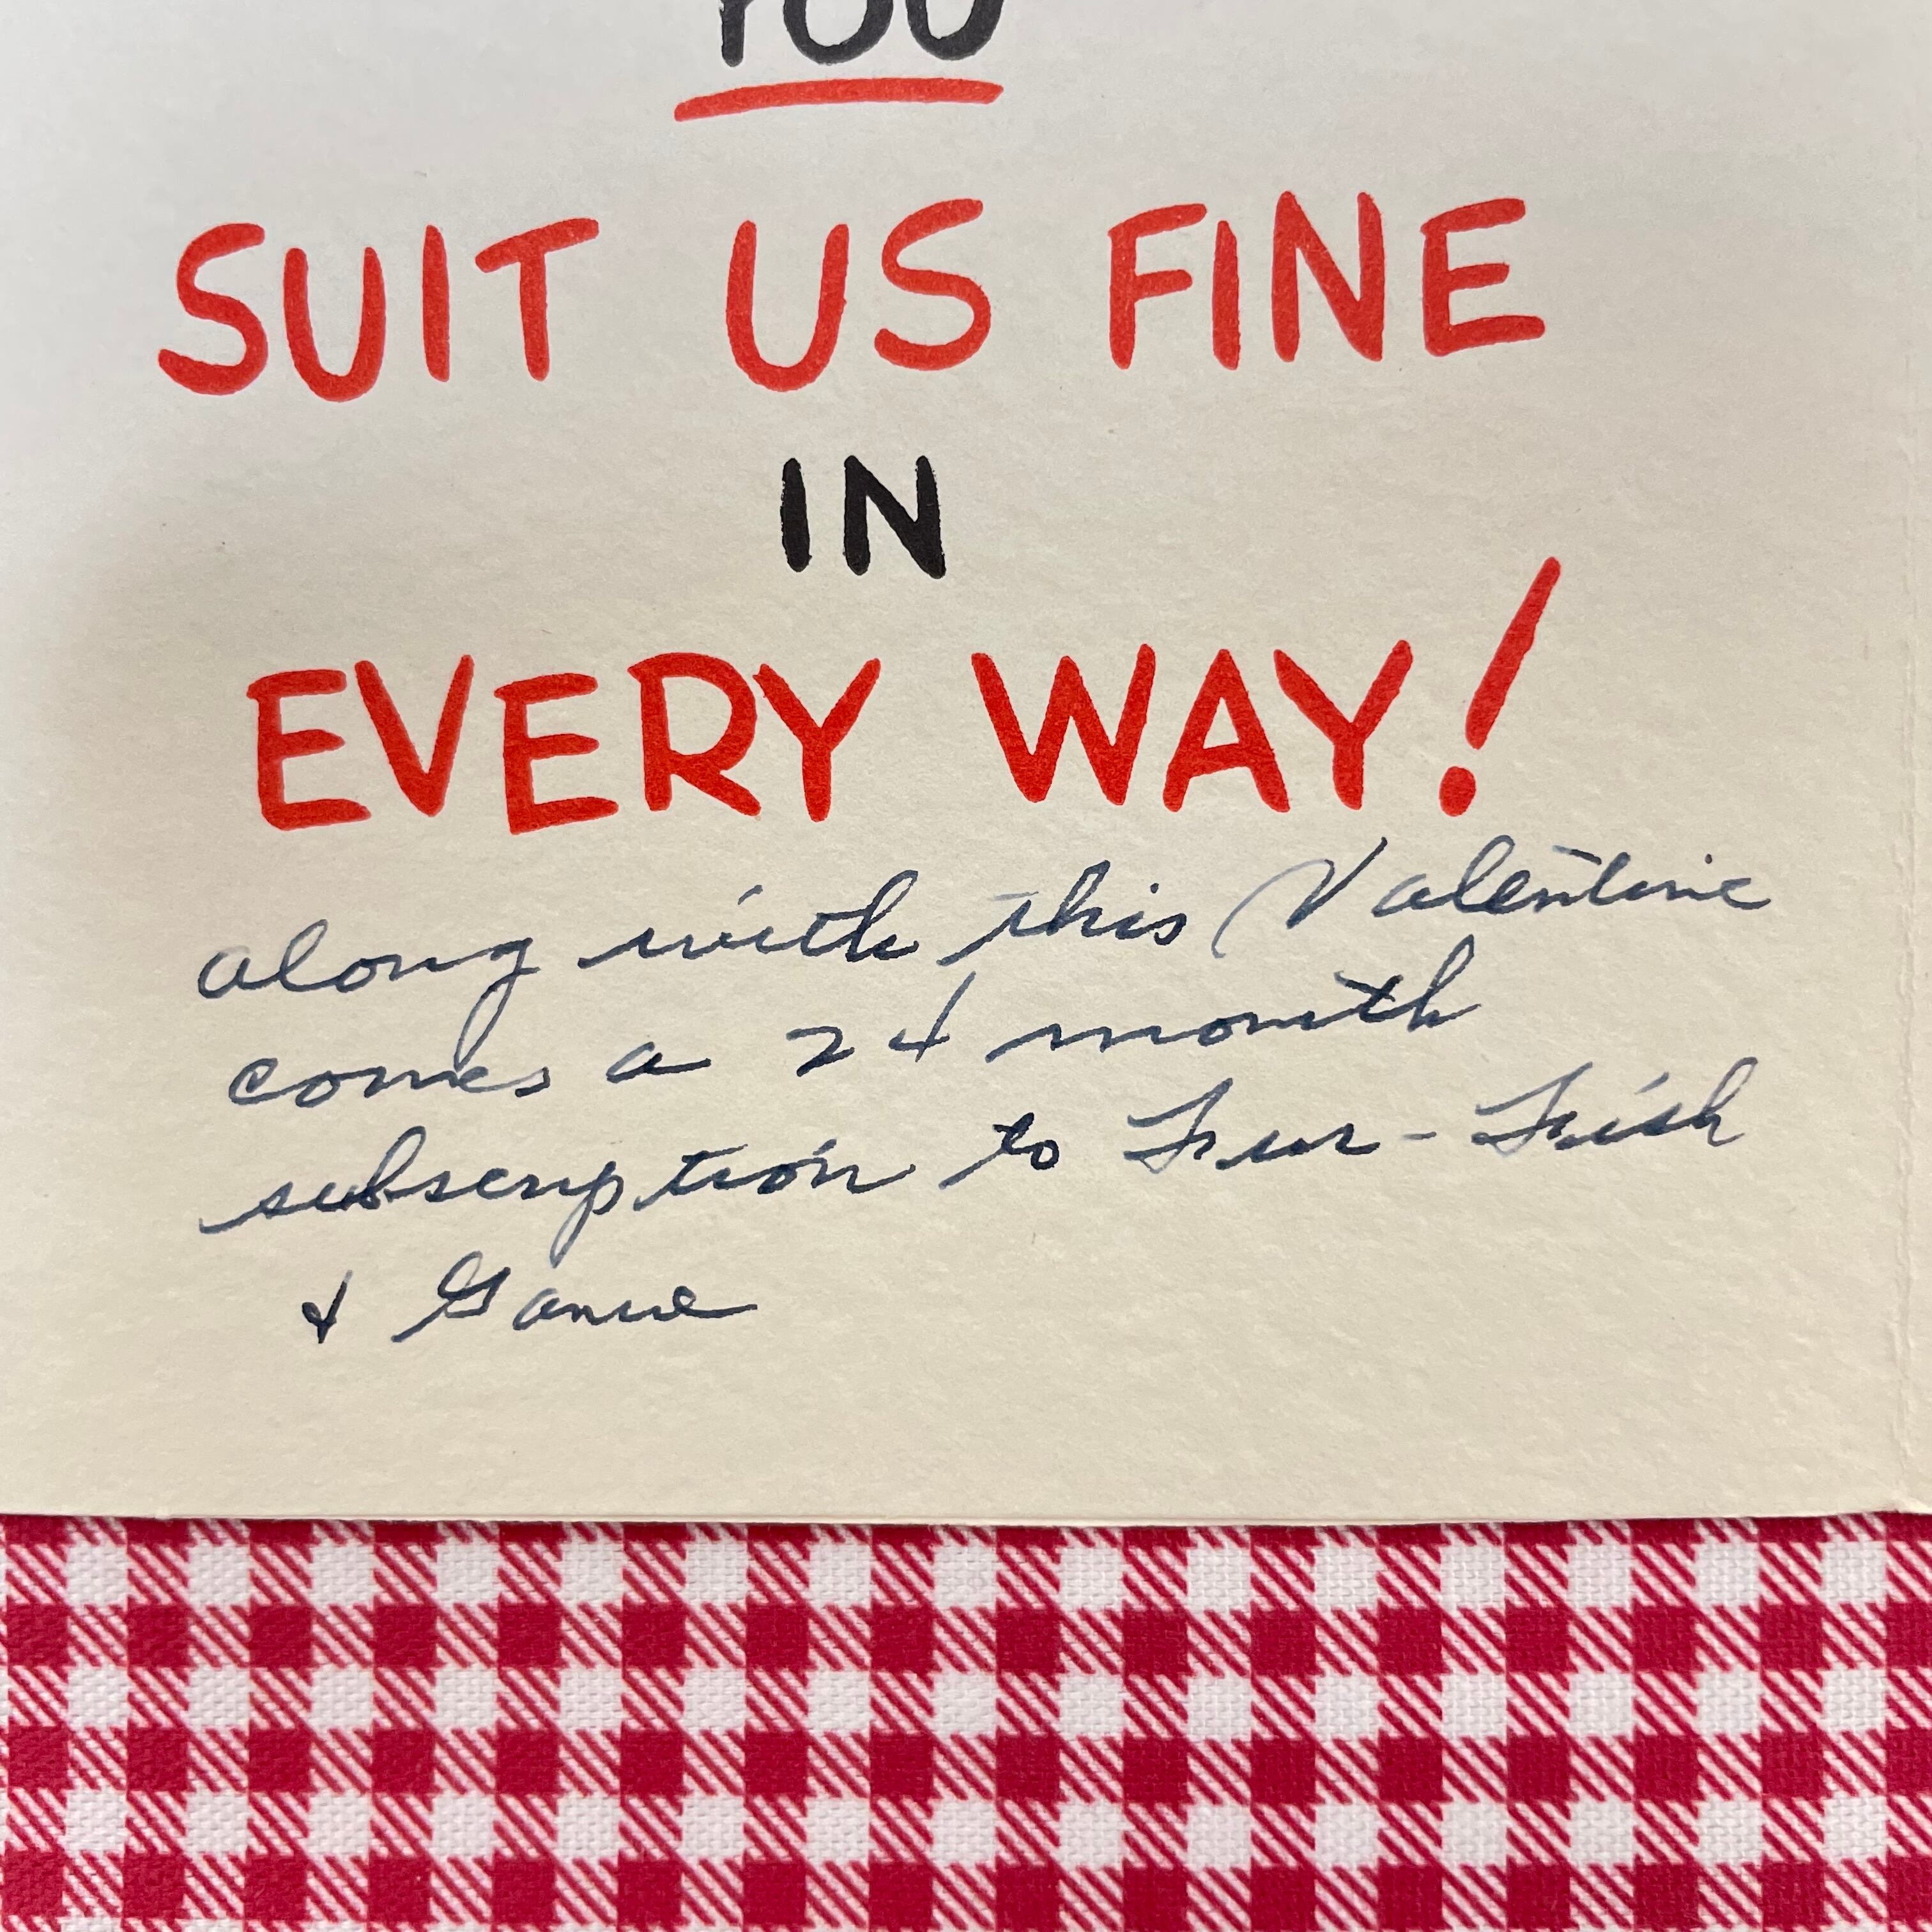 YOU
SUIT US FINE
IN
EVERY WAY!
along with this Valentine
comes a 24 month
subscription to Fur-Fish
& Game